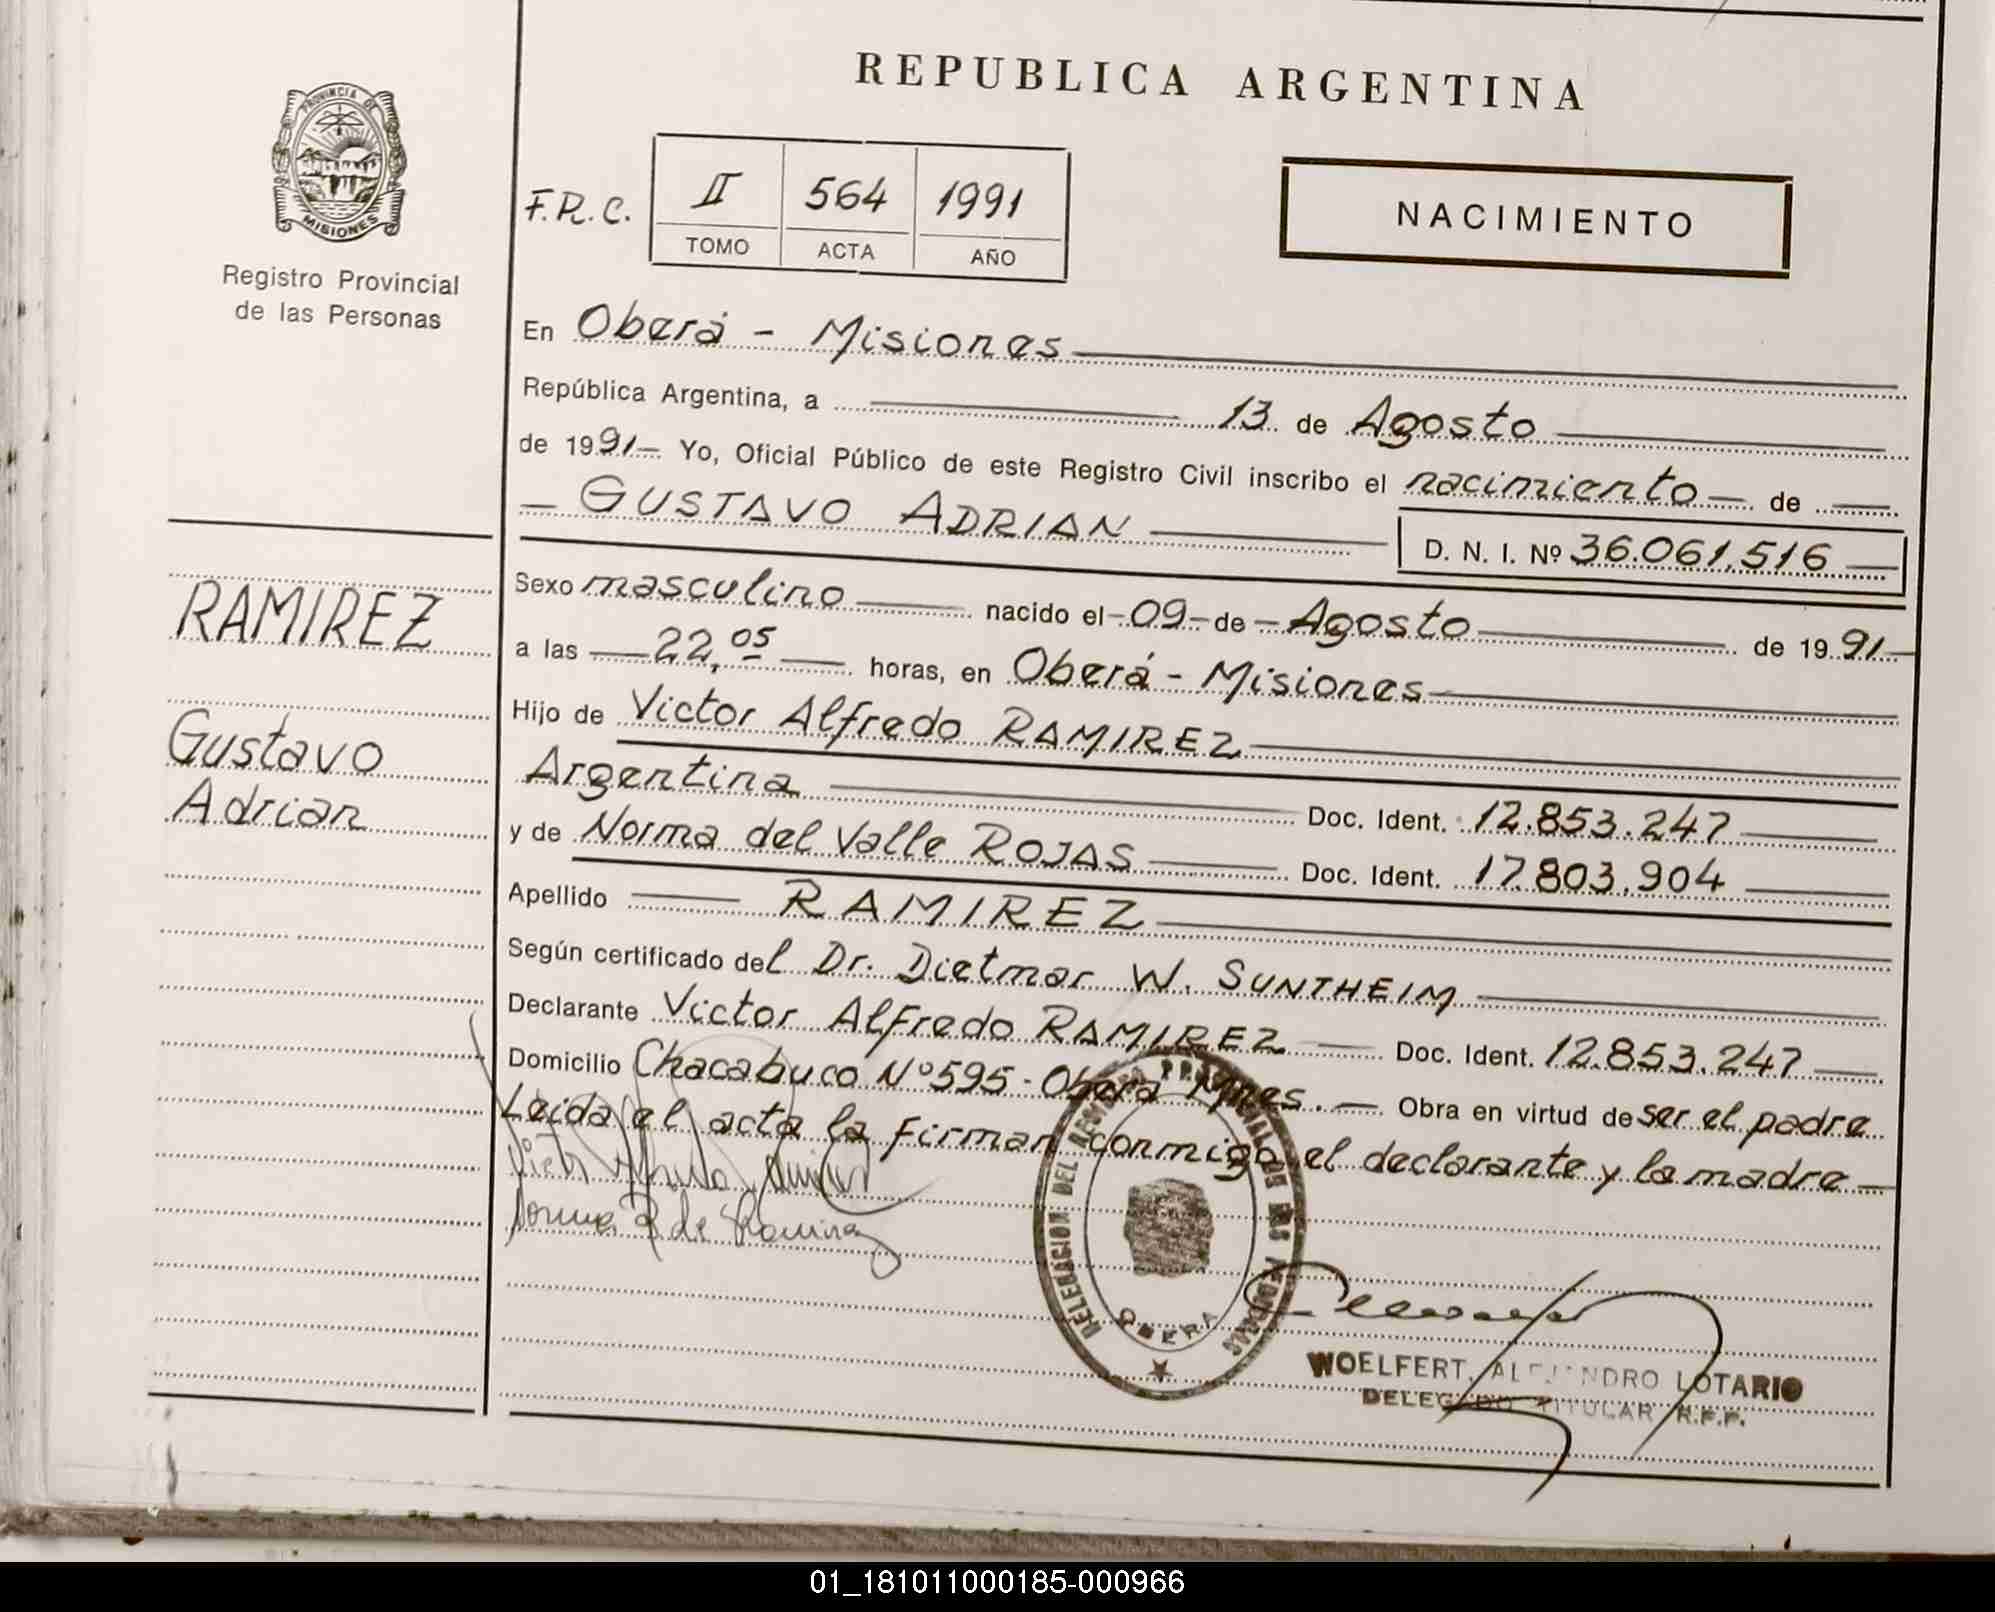 REPUBLICA ARGENTINA
PROVINCIA DE
MISIONES
Registro Provincial
de las Personas
F.R.C. II 564 1991
TOMO ACTA AÑO
NACIMIENTO
En Oberá - Misiones
República Argentina, a 13 de Agosto
de 1991 - Yo, Oficial Público de este Registro Civil inscribo el nacimiento - de
- GUSTAVO ADRIAN
D. N. I. Nº 36.061.516
Sexo masculino nacido el - 09 - de - Agosto de 1991 -
a las 22,05 horas, en Oberá - Misiones
Hijo de Victor Alfredo RAMIREZ
Argentina Doc. Ident. 12.853.247
y de Norma del Valle ROJAS Doc. Ident. 17.803.904
Apellido RAMIREZ
Según certificado del Dr. Dietmar W. SUNTHEIM
Declarante Victor Alfredo RAMIREZ Doc. Ident. 12.853.247
Domicilio Chacabuco Nº 595 - Oberá Mnes. - Obra en virtud de ser el padre
Leida el acta la firman conmigo el declarante y la madre -
RAMIREZ
Gustavo
Adrian
Norma R de Ramirez
DELEGACION DEL REGISTRO PROVINCIAL DE LAS PERSONAS
OBERA
WOELFERT, ALEJANDRO LOTARIO
DELEGADO TITULAR R.P.P.
01_181011000185-000966